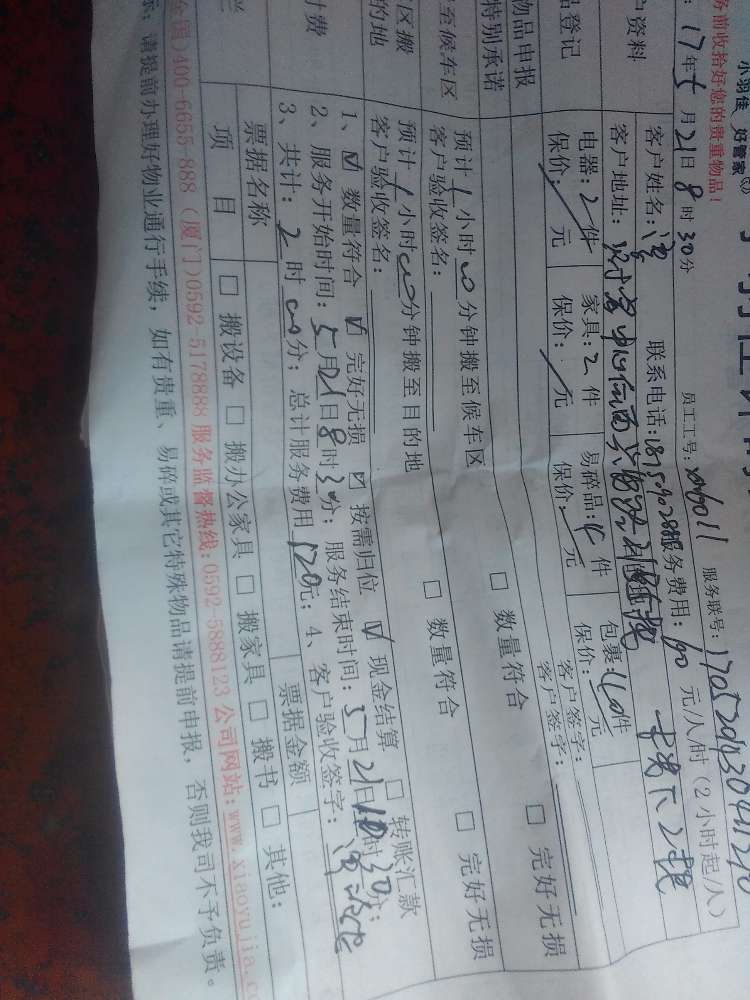 小羽佳 好管家
务前收拾好您的贵重物品!
17年5月21日8时30分
员工工号:
服务联号:
户资料
客户姓名:
联系电话:
服务费用:
元/小时(2小时起/人)
客户地址:
品登记
电器:2件 家具:2件 易碎品:4件 包裹:40件
保价: 元 保价: 元 保价: 元 保价: 元
物品申报
客户签字:
特别承诺
客户签字:
至候车区
预计1小时00分钟搬至候车区 □ 数量符合 □ 完好无损
客户验收签名:
区区搬
的地
预计1小时00分钟搬至目的地 □ 数量符合 □ 完好无损
客户验收签名:
付费
1、☑ 数量符合 ☑ 完好无损 ☑ 按需归位 ☑ 现金结算 □ 转账汇款
2、服务开始时间:5月21日8时30分;服务结束时间:5月21日10时30分;
3、共计:2时00分;总计服务费用120元;4、客户验收签字:
栏
票据名称 票据金额
项目 □ 搬设备 □ 搬办公家具 □ 搬家具 □ 搬书 □ 其他:
全国)400-6655-888 (厦门)0592-5178888 服务监督热线:0592-5888123 公司网站:www.xiaoyujia.c
示:请提前办理好物业通行手续,如有贵重、易碎或其它特殊物品请提前申报,否则我司不予负责。